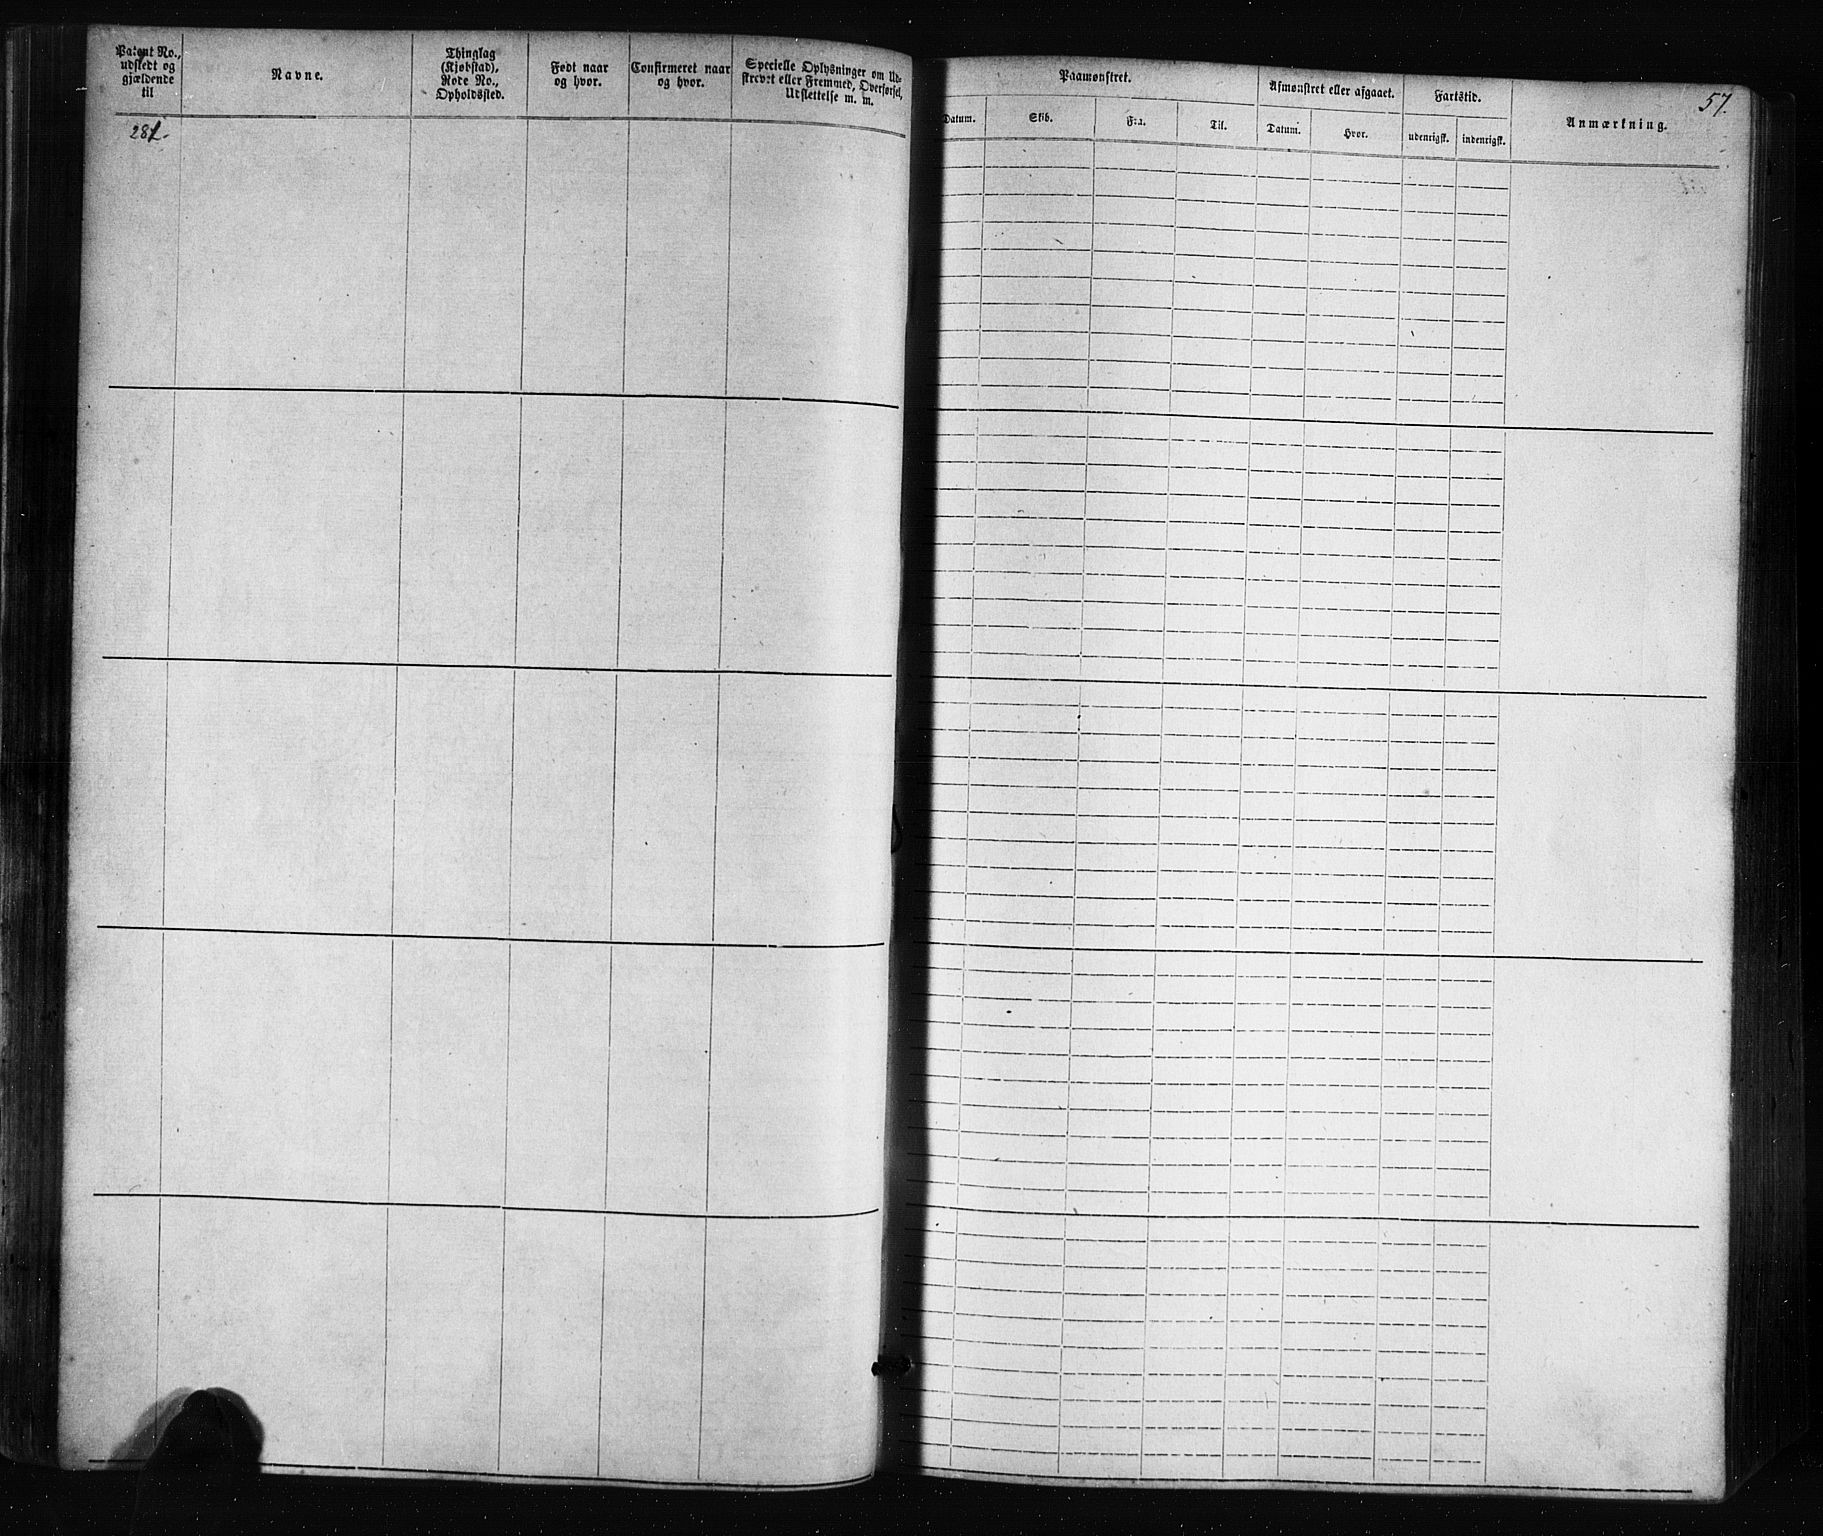 Patent No.,
udstedt og
gjældende
til
Navne.
Thinglag
(Kjøbstad),
Rode No.,
Opholdssted.
Født naar
og hvor.
Confirmeret naar
og hvor.
Specielle Oplysninger om Ud-
skrevet eller Fremmed, Overførsel,
Udslettelse m. m.
281.
57.
Paamønstret.
Datum.
Skib.
Fra.
Til.
Afmønstret eller afgaaet.
Datum.
Hvor.
Fartstid.
udenrigsk.
indenrigsk.
Anmærkning.